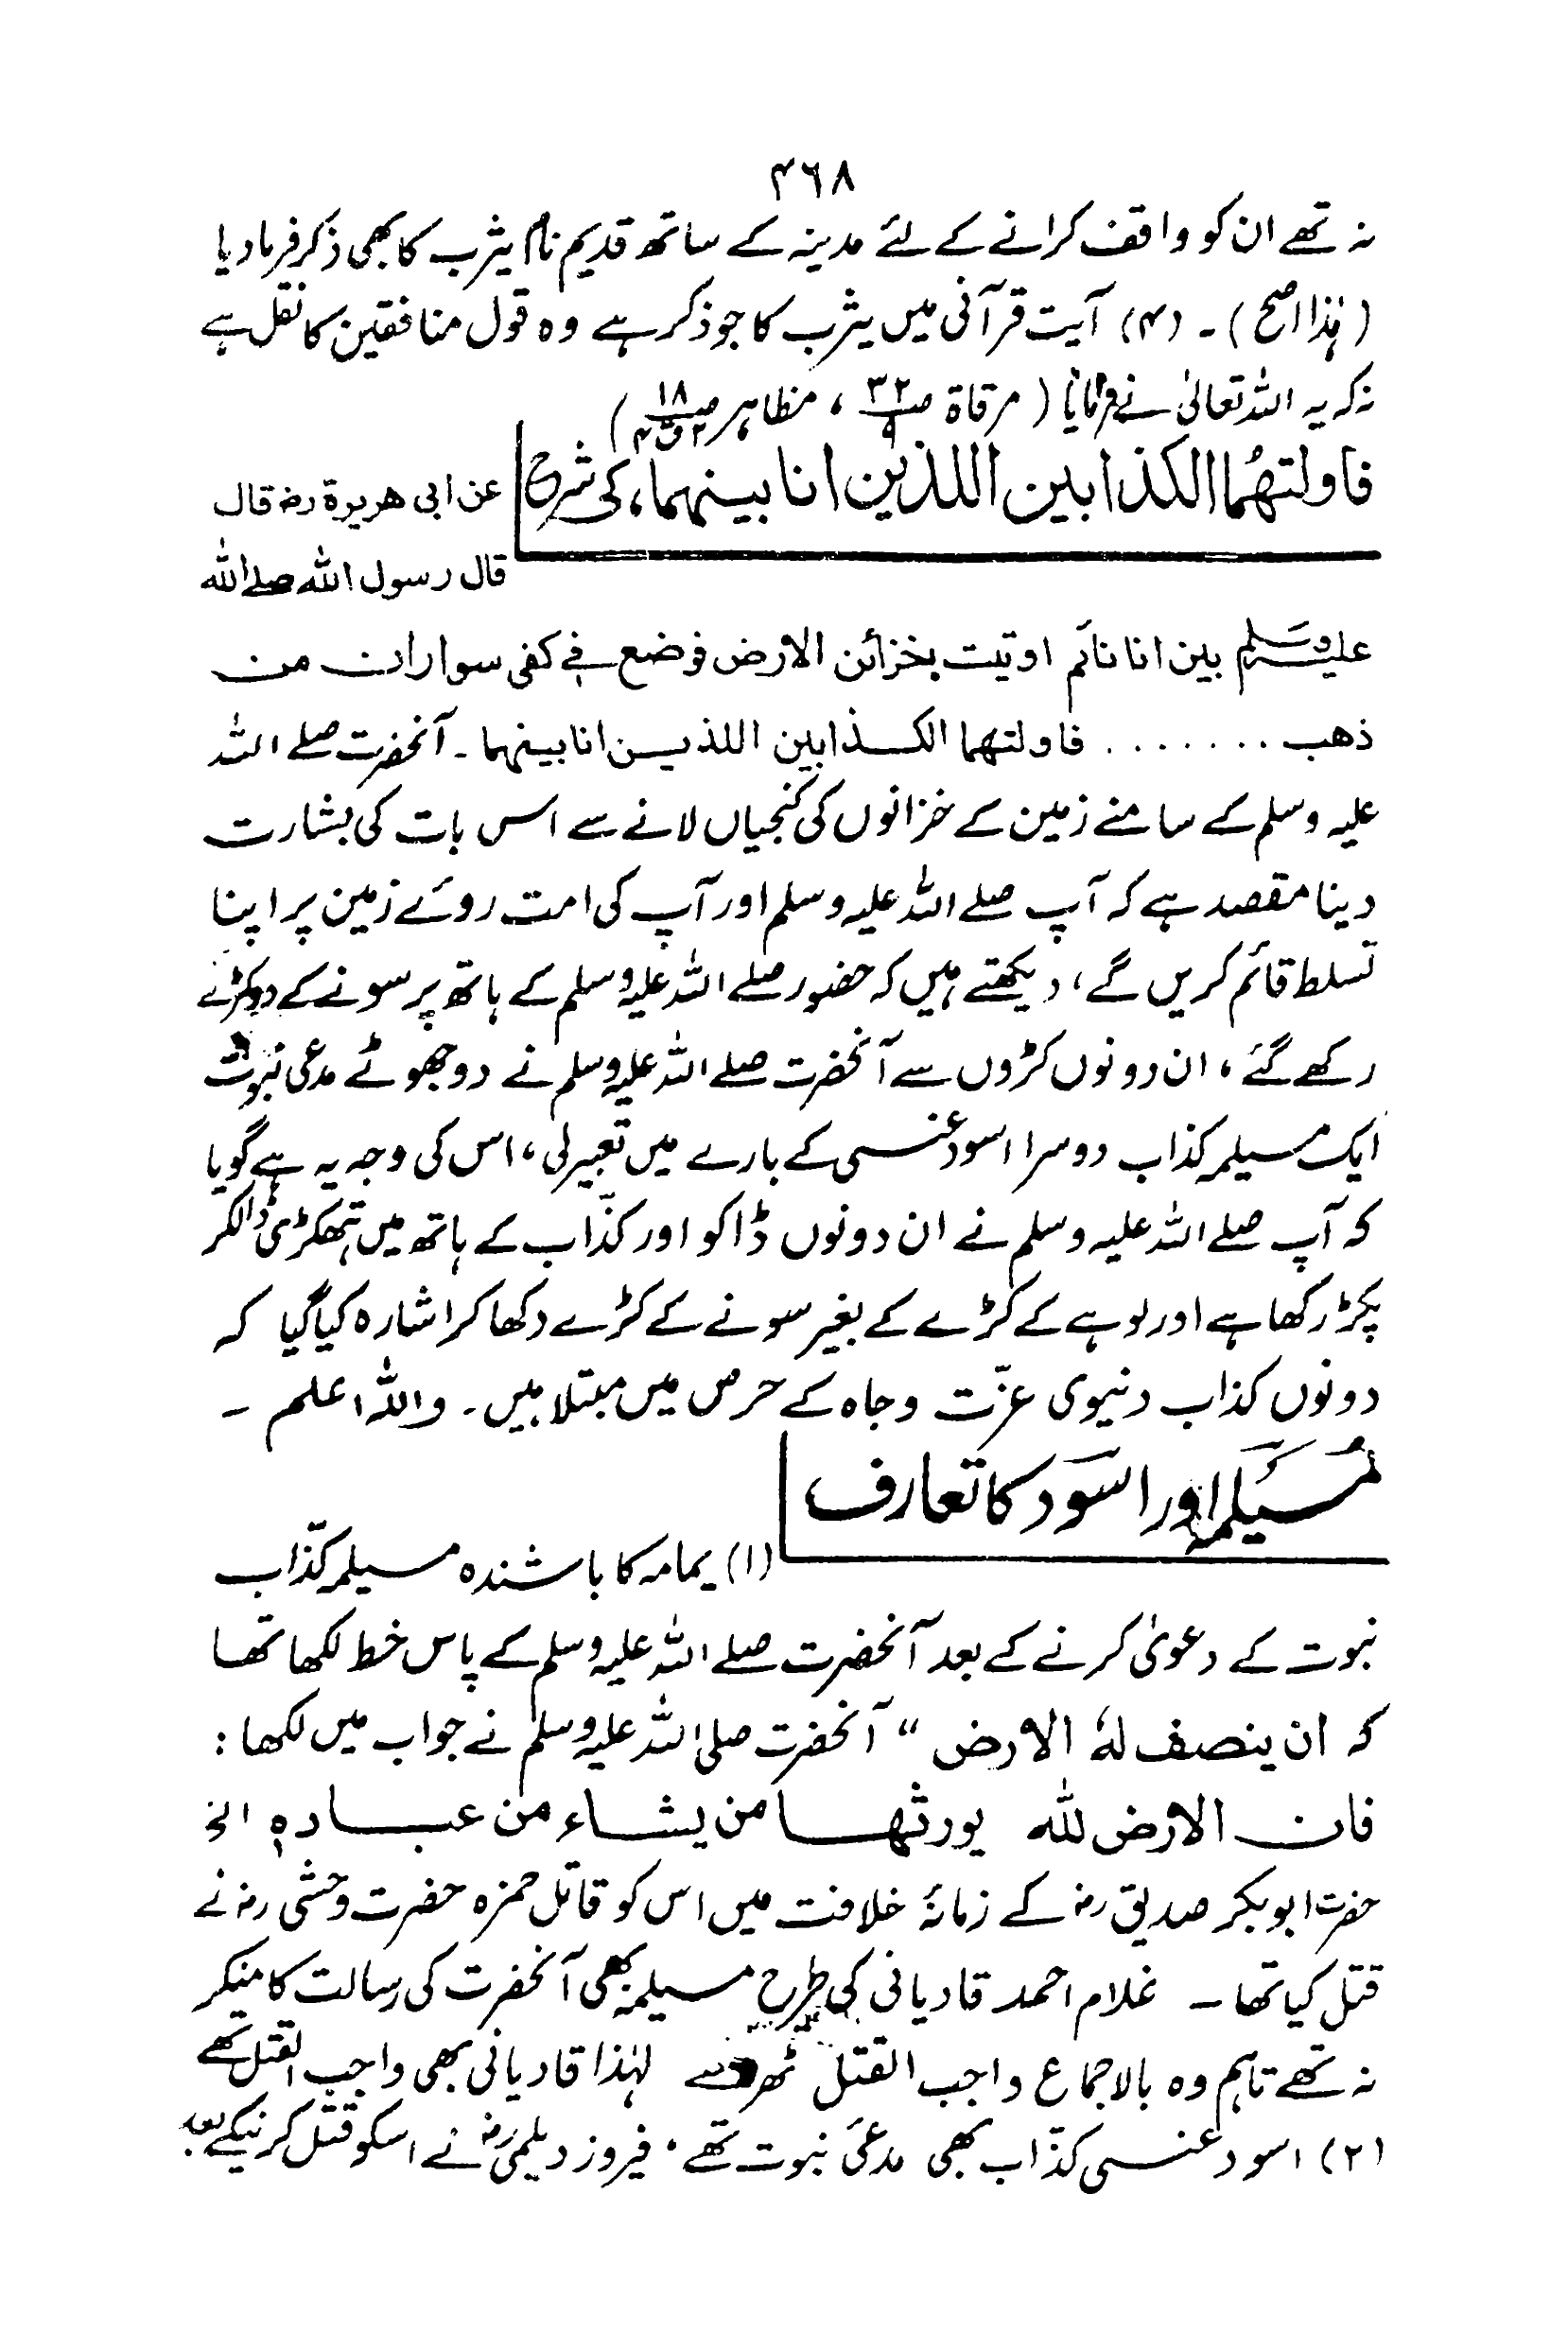 ۴۶۸
نہ تھے ان کو واقف کرانے کے لئے مدینہ کے ساتھ قدیم نام یثرب کا بھی ذکر فرمادیا
(ہٰذا اصح)۔ (۴) آیت قرآنی میں یثرب کا جو ذکر ہے وہ قول منافقین کا نقل ہے
نہ کہ یہ اللہ تعالیٰ نے فرمایا (مرقاۃ ص۳۲، مظاہر ص۱۸)
فاولتھُما الکذابین اللذین انا بینہما، کی شرح
عن ابی ھریرۃ رضہ قال
قال رسول اللہ صلے اللہ
علیہ وسلم بین انا نائم اوتیت بخزائن الارض فوضع فی کفی سواران من
ذھب ....... فاولتھما الکذابین اللذین انا بینہما۔ آنحضرت صلے اللہ
علیہ وسلم کے سامنے زمین کے خزانوں کی کنجیاں لانے سے اس بات کی بشارت
دینا مقصد ہے کہ آپ صلے اللہ علیہ وسلم اور آپ کی امت روئے زمین پر اپنا
تسلط قائم کریں گے، دیکھتے ہیں کہ حضور صلے اللہ علیہ وسلم کے ہاتھ پر سونے کے دو کڑے
رکھے گئے، ان دونوں کڑوں سے آنحضرت صلے اللہ علیہ وسلم نے دو جھوٹے مدعی نبوت
ایک مسیلمہ کذاب دوسرا اسود عنسی کے بارے میں تعبیر لی، اس کی وجہ یہ ہے گویا
کہ آپ صلے اللہ علیہ وسلم نے ان دونوں ڈاکو اور کذّاب کے ہاتھ میں ہتھکڑی ڈالکر
پکڑ رکھا ہے اور لوہے کے کڑے کے بغیر سونے کے کڑے دکھا کر اشارہ کیا گیا کہ
دونوں کذاب دنیوی عزّت و جاہ کے حرص میں مبتلا ہیں۔ واللہ اعلم ۔
مُسَیلَمہ اور اسوَد کا تعارف
(۱) یمامہ کا باشندہ مسیلمہ کذّاب
نبوت کے دعویٰ کرنے کے بعد آنحضرت صلے اللہ علیہ وسلم کے پاس خط لکھا تھا
کہ ان ینصف لہٗ الارض “ آنحضرت صلی اللہ علیہ وسلم نے جواب میں لکھا :
فان الارض للہ یورثھا من یشاء من عبادہٖ الخ
حضرت ابوبکر صدیق رضہ کے زمانۂ خلافت میں اس کو قاتل حمزہ حضرت وحشی رضہ نے
قتل کیا تھا ۔ غلام احمد قادیانی کی طرح مسیلمہ بھی آنحضرت کی رسالت کا منکر
نہ تھے تاہم وہ بالاجماع واجب القتل ٹھرے لہٰذا قادیانی بھی واجب القتل تھے
(۲) اسود عنسی کذّاب بھی مدعئ نبوت تھے، فیروز دیلمی رضہ نے اسکو قتل کرنیکے بعد